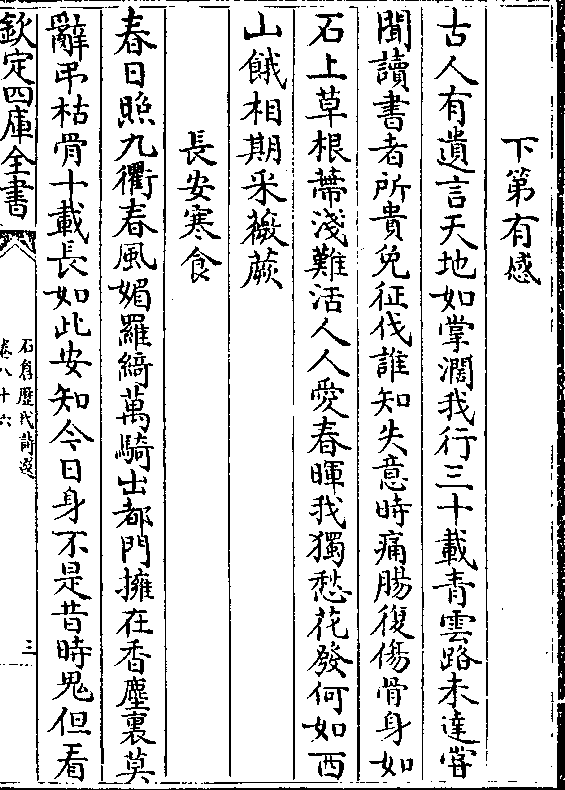 下第有感
古人有遺言天地如掌濶我行三十載青雲路未達嘗
聞讀書者所貴免征伐誰知失意時痛腸復傷骨身如
石上草根蔕淺難活人人愛春暉我獨愁花發何如西
山餓相期采薇蕨
長安寒食
春日照九衢春風媚羅綺萬騎出都門擁在香塵裏莫
辭弔枯骨十載長如此安知今日身不是昔時鬼但看
欽定四庫全書
石倉歷代詩選
卷八十六
三